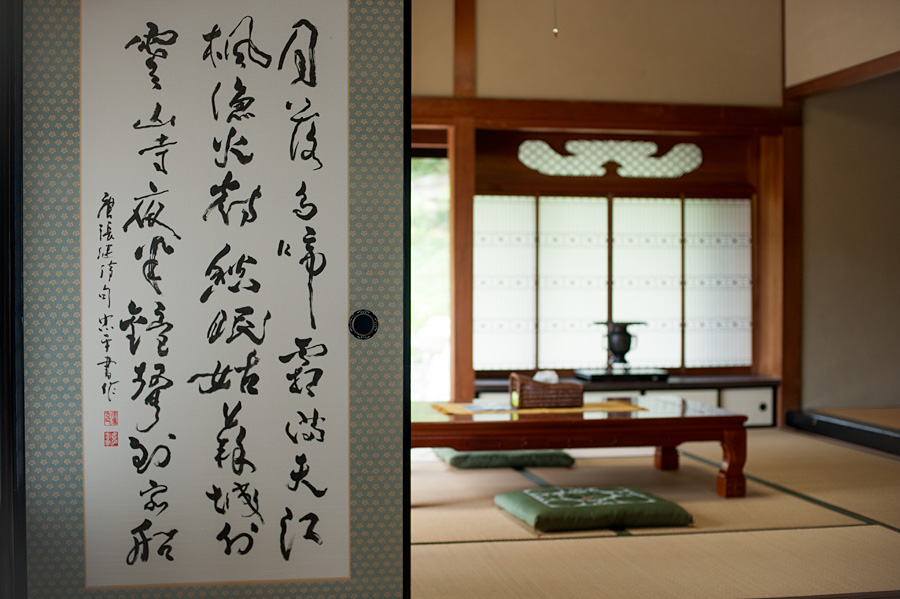 月落烏啼霜满天江
楓漁火對愁眠姑蘇城外
寒山寺夜半鐘聲到客船
唐張继诗句